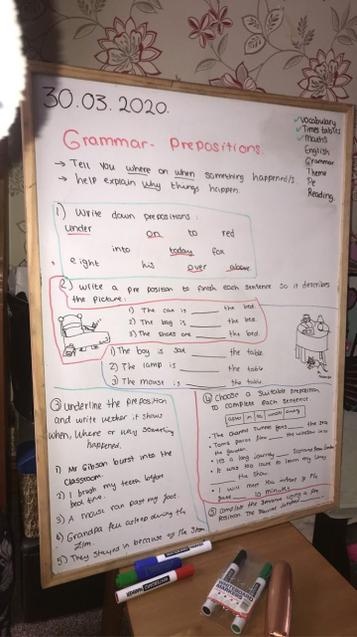 30.03.2020.
Grammar- Prepositions.
→ Tell you where or when something happened/s.
→ help explain why things happen.
✓ Vocabulary
✓ Times tables
✓ Maths
English
Grammar
Theme
Pe
Reading.
1) Write down prepositions:
under on to red
into today for
eight his over above
2) Write a pre position to finish each sentence so it describes
the picture:
1) The cat is ____ the bed.
2) The bag is ____ the bed.
3) The shoes are ____ the bed.
1) The boy is sat ____ the table
2) The lamp is ____ the table
3) The mouse is ____ the table
3) underline the preposition
and write wether it shows
when, where or why something
happened.
1) Mr Gibson burst into the
classroom.
2) I brush my teeth before
bed time.
3) A mouse ran past my foot.
4) Grandpa fell asleep during the
film.
5) They stayed in because of the storm
4) Choose a suitable preposition
to complete each sentence
• The Channel Tunnel goes ____ the sea
• Tom's parcel flew ____ the window into
the garden.
• It's a long journey ____ London
• It was too late to learn my lines
the show.
• I will meet you
10 minutes
5) Complete the sentence using a pre
position.